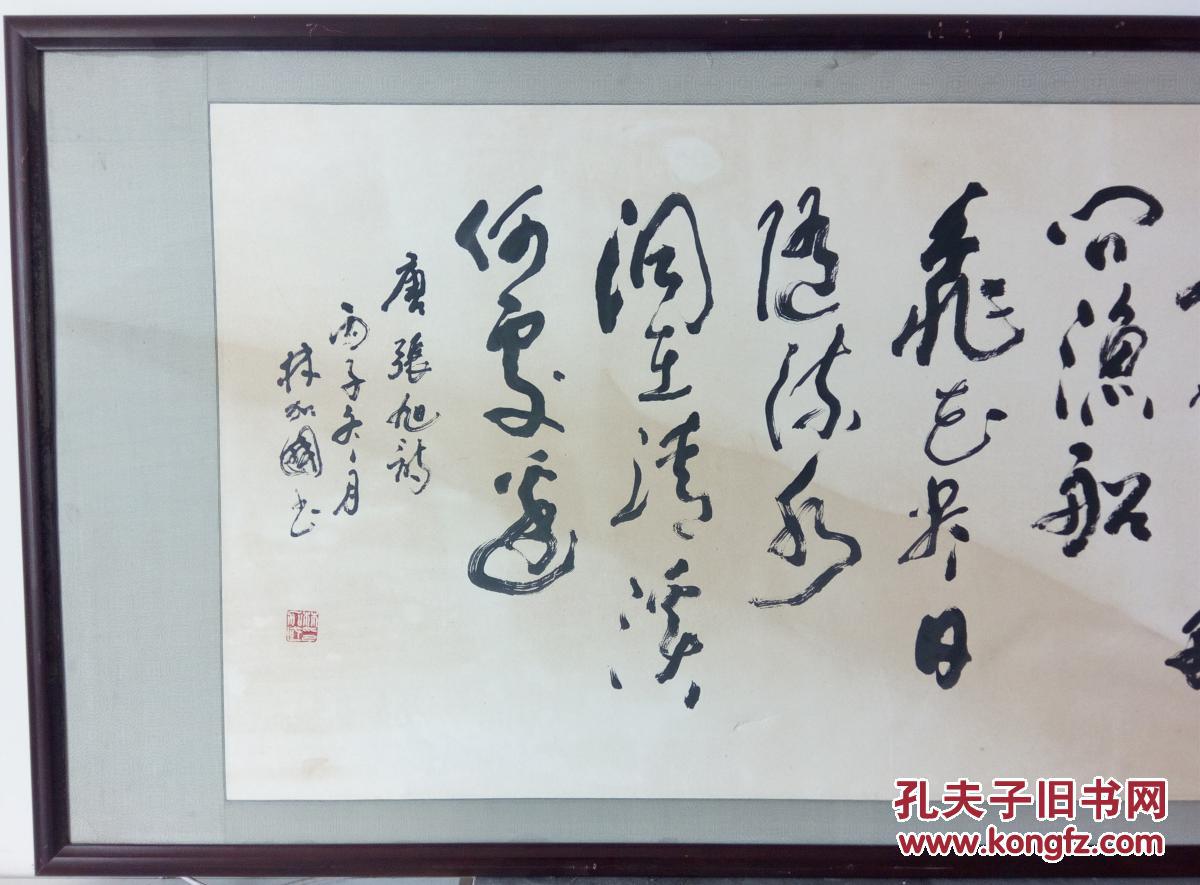 问漁船
桃花尽日
随流水
洞在清溪
何處邊
唐張旭詩
丙子冬月
林加國书
孔夫子旧书网
www.kongfz.com